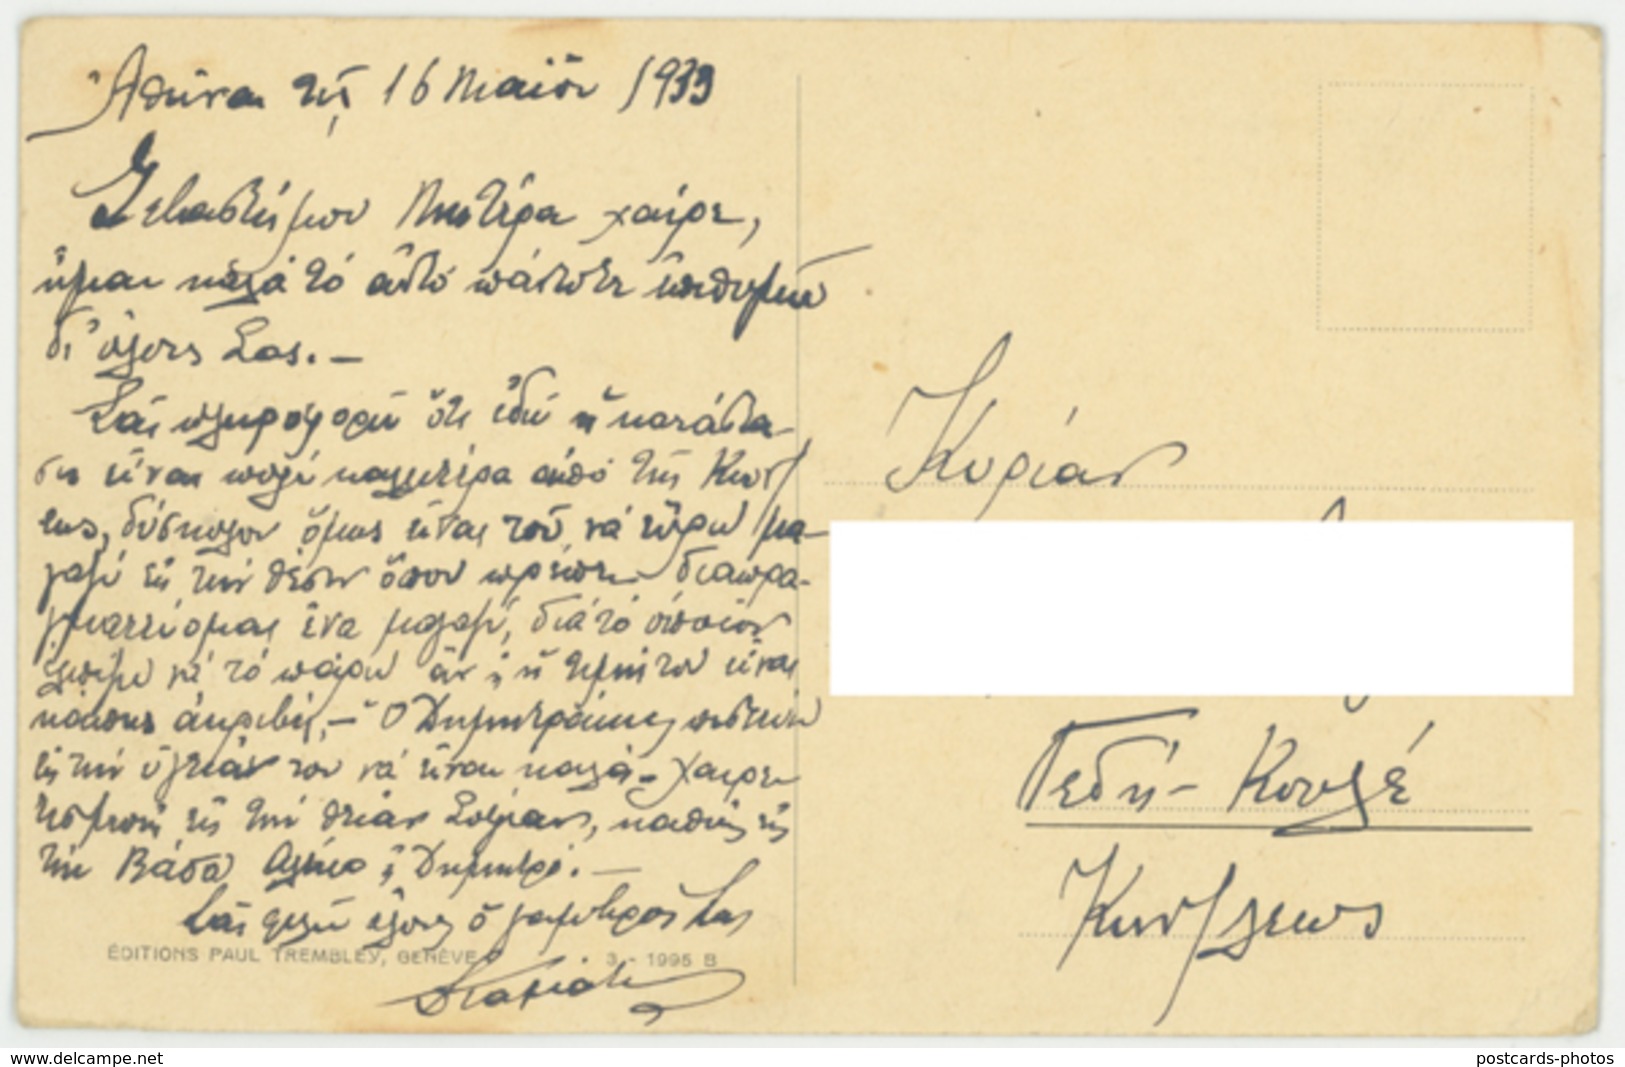 Ἀθῆναι τῇ 16 Μαΐου 1933
Σεβαστή μου Μητέρα χαῖρε,
εἶμαι καλά τό αὐτό πάντοτε ἐπιθυμῶ
δι' ὅλους Σας.—
Σᾶς πληροφορῶ ὅτι ἐδῶ ἡ κατάστα-
σις εἶναι πολύ καλητέρα ἀπό τῆς Κων/
λεως, δύσκολον ὅμως εἶναι τοῦ νά εὕρω μα-
γαζί εἰς τήν θέσιν ὅπου πρέπει διαπρα-
γματεύομαι ἕνα μαγαζί, διά τό ὁποῖον
ἐλπίζω νά τό πάρω ἄν καί ἡ τιμή του εἶναι
κάπως ἀκριβή,— Ὁ Δημητράκης πιστεύω
εἰς τήν ὑγείαν του νά εἶναι καλά.- Χαιρε-
τισμούς εἰς τήν θείαν Σοφίαν, καθώς εἰς
τήν Βάσω Αλέκο καί Δημητρό.—
Σᾶς φιλῶ ὅλους ὁ γαμβρός Σας
ÉDITIONS PAUL TREMBLEY, GENÈVE 3 - 1995 B
Κυρίαν
Γεδή-Κουλέ
Κων/λεως
www.delcampe.net
postcards-photos